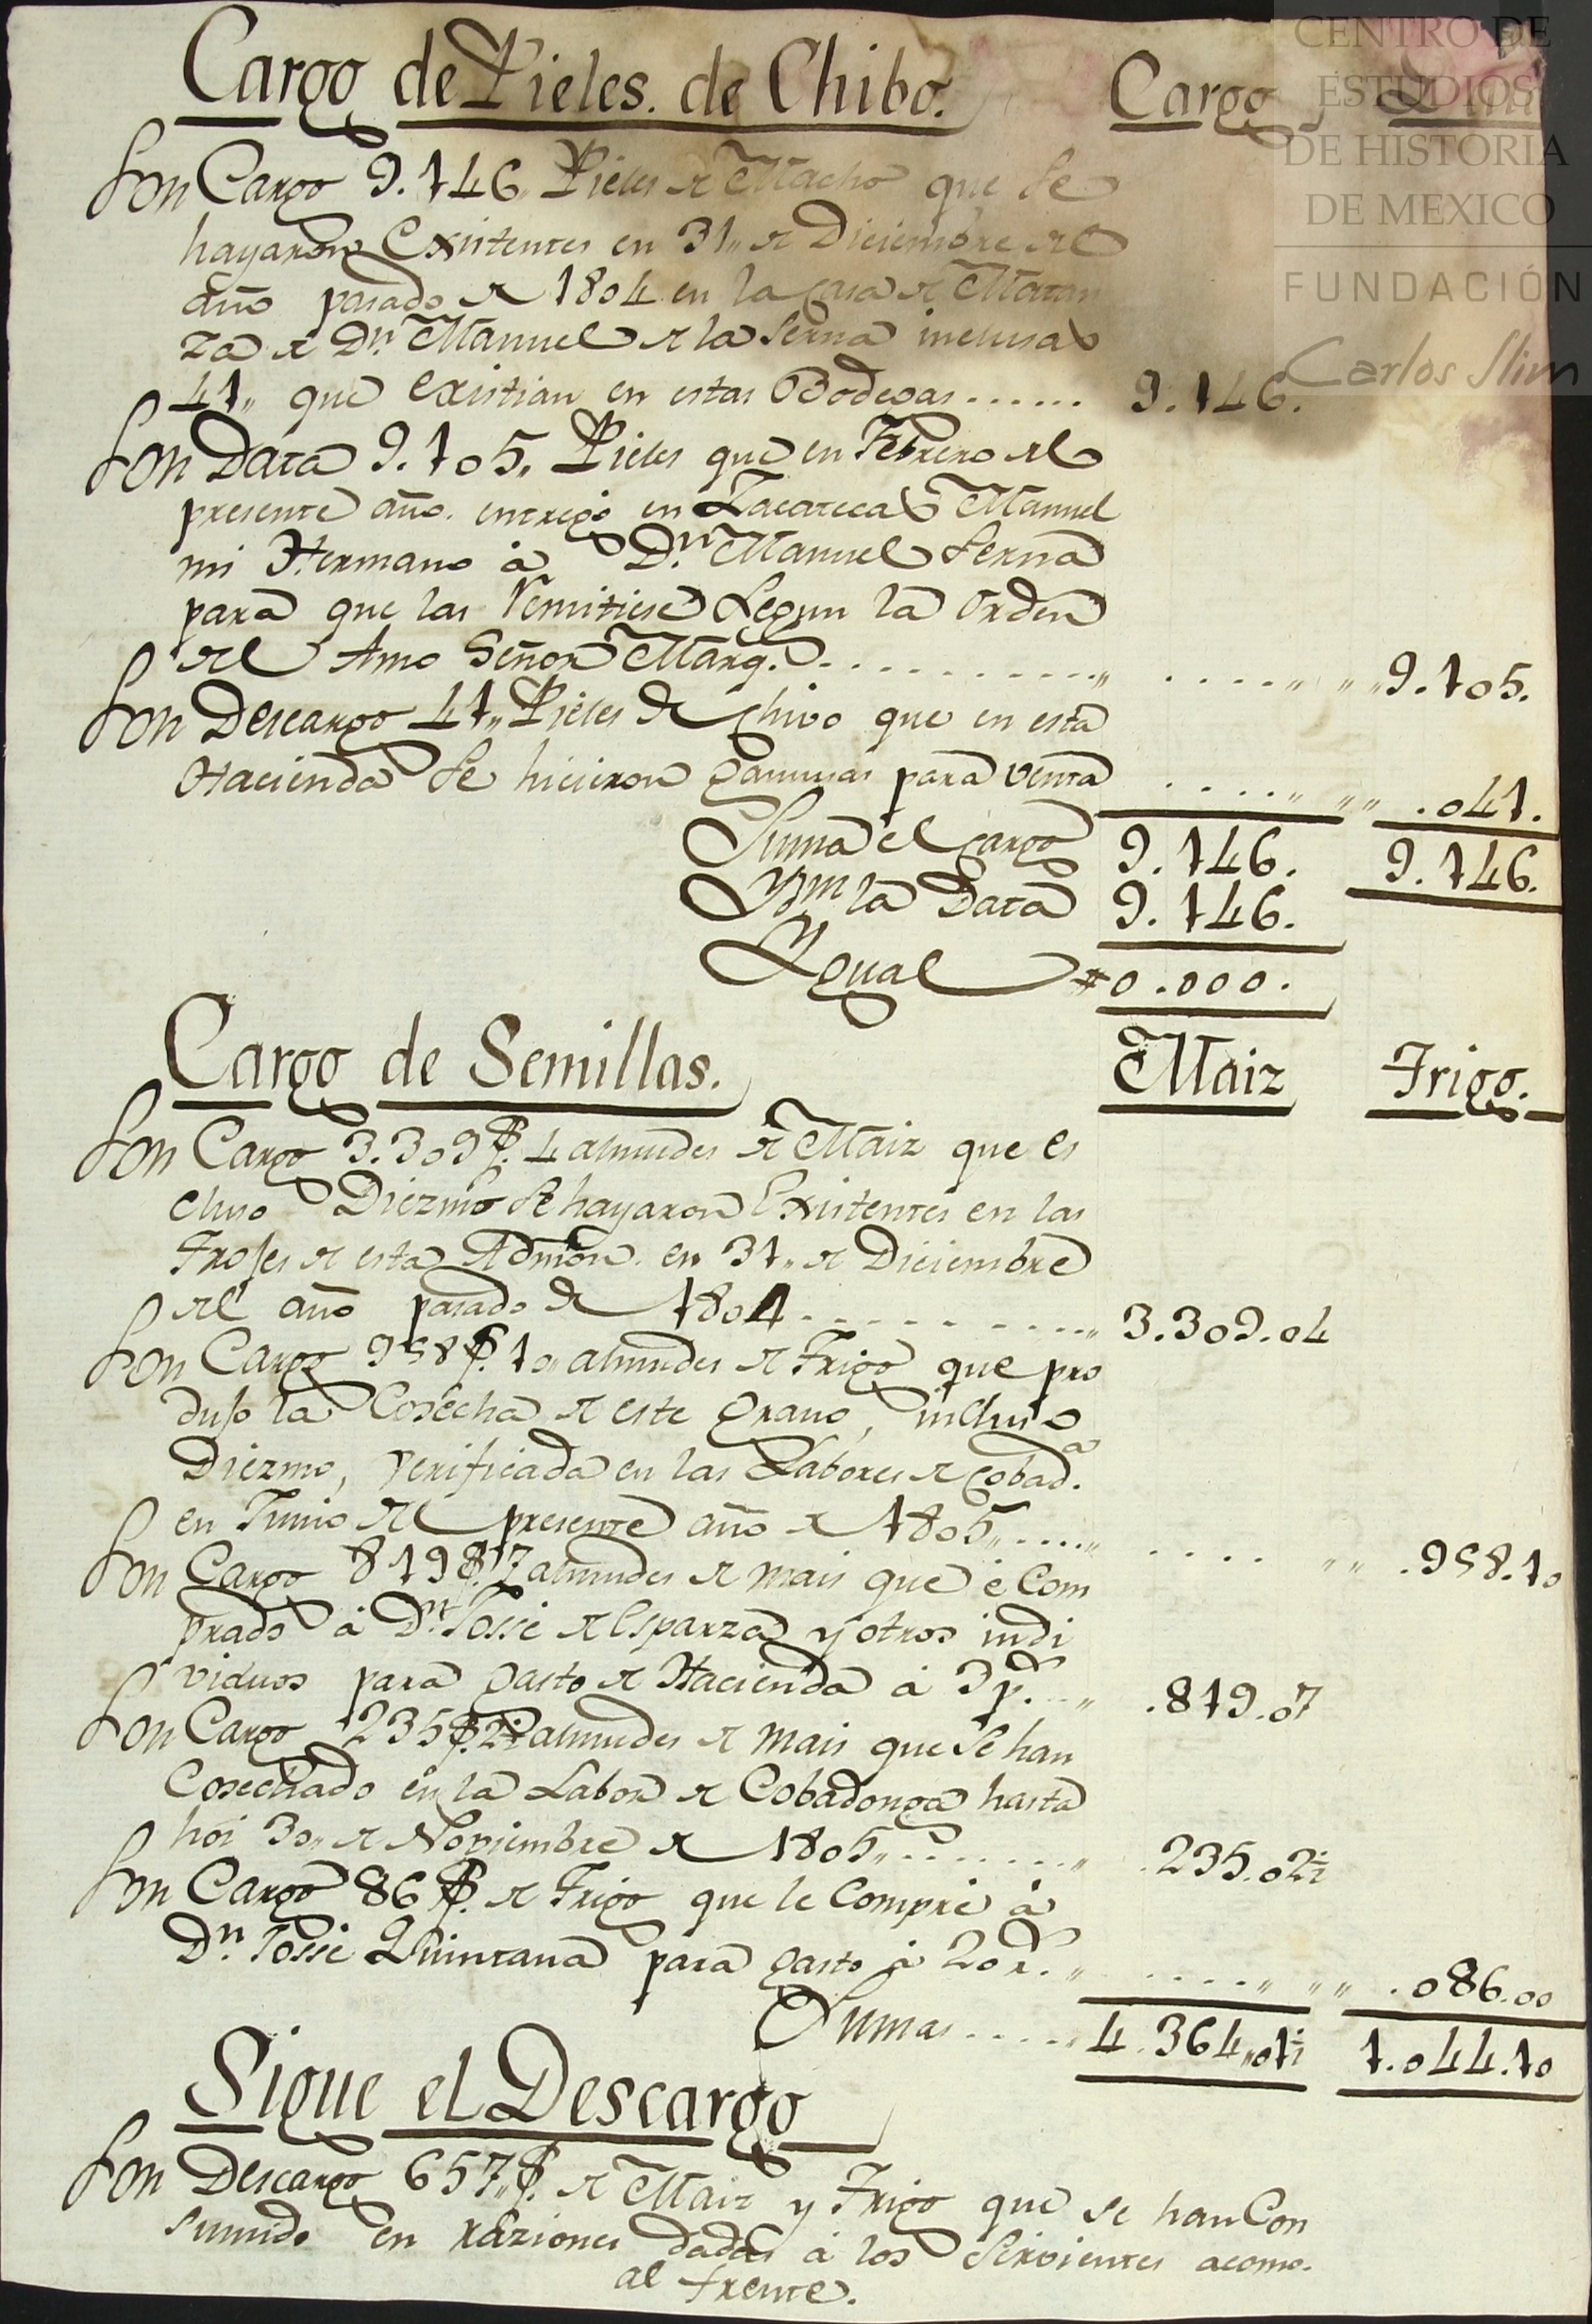 Cargo de Pieles. de Chibo. Cargo
Son Cargo 9.146,, Pieles de Macho que se
hayaron Existentes en 31,, de Diciembre del
año pasado de 1804 en la Casa de Matan
za de Dn. Manuel de la Serna inclusas
41,, que existian en estas Bodegas...... 9.146.
Son Data 9.105,, Pieles que en Febrero del
presente año. entregó en Zacatecas Manuel
mi Hermano á Dn. Manuel Serna
para que las Remitiese Segun la Orden
del Amo Señor Marq. ........,, .....,, ,, ,, 9.105.
Son Descargo 41,, Pieles de Chivo que en esta
Hacienda se hicieron gamusas para venta .....,, ,, ,, .041.
Suma el Cargo 9.146. 9.146.
Ydm la Data 9.146.
Ygual #0.000.
Cargo de Semillas. Maiz Trigo.
Son Cargo 3.309 f. 4 almudes de Maiz que es
cluso Diezmo se hayaron Existentes en las
Trojes de esta Admon. en 31,, de Diciembre
del año pasado de 1804..........,, 3.309.04
Son Cargo 958 f. 10,, almudes de Trigo que pro
dujo la Cosecha de este grano, incluso
Diezmo, verificada en las Labores de Cobad.a
en Junio del presente año de 1805,,.....,, .... ,, ,, .958.10
Son Cargo 819 f. 7 almudes de mais que é Com
prado á Dn. Josse de Esparza y otros indi
viduos para gasto de Hacienda á 3 p.s..,, .819.07
Son Cargo 235 f. 2½ almudes de mais que se han
Cosechado en la Labor de Cobadonga hasta
hoi 30,, de Noviembre de 1805,,........,, .235.02½
Son Cargo 86 f. de Trigo que le Compré á
Dn. Josse Quintana para gasto á 20 r.s ,, .....,, ,, ,, .086.00
Sumas.....4.364,,01½ 1.044.10
Sigue el Descargo
Son Descargo 657,, f. de Maiz y Trigo que se han Con
sumido en raziones dadas á los Sirvientes acomo.
al frente.
CENTRO DE
ESTUDIOS
DE HISTORIA
DE MEXICO
FUNDACIÓN
Carlos Slim